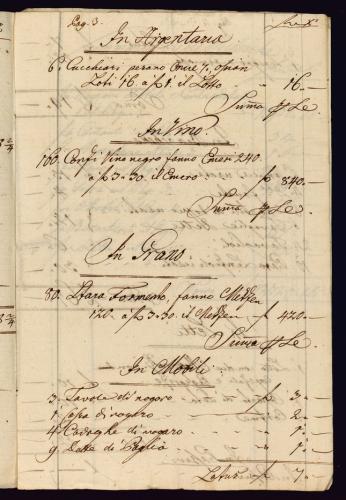 Pag. 3.
In Argentaria
6. Cucchiari pesano Oncie 7, osian
Loti 16 a f 1 il Lotto " 16.—
Suma p Se
In Vino.
160. Vino negro fanno Emeri 240
a f 3 " 30. il Emero f 840.—
Suma p Se
In Grano.
80. Stara Formento, fanno Metzen
120 a f 3 " 30. il Metzen f 420.—
Suma p Se
In Mobili
3. Tavole di nogaro f 3.—
1. di nogaro " 2.—
4. Careghe di nogaro " 1.—
9. Dette di Paglia " 1.—
Latus f 7.—